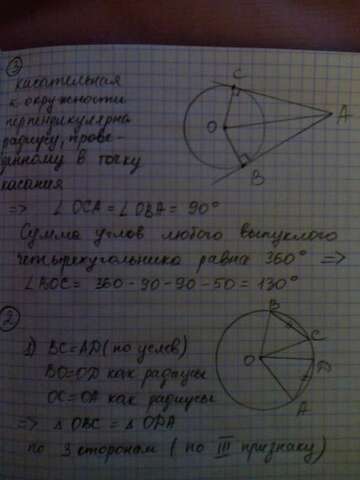 ③
касательная
к окружности
перпендикулярна
радиусу, прове-
дённому в точку
касания
C
O
A
B
=> ∠OCA = ∠OBA = 90°
Сумма углов любого выпуклого
четырёхугольника равна 360° =>
∠BOC = 360 - 90 - 90 - 50 = 130°
②
1) BC=AD (по услов)
BO=OD как радиусы
OC=OA как радиусы
=> △ OBC = △ ODA
по 3 сторонам ( по III признаку)
B
C
O
D
A